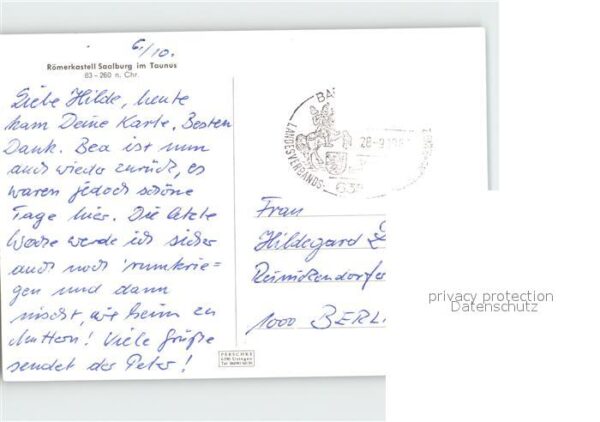 6./10.
Römerkastell Saalburg im Taunus
83-260 n. Chr.
Liebe Hilde, heute
kam Deine Karte. Besten
Dank. Bea ist nun
auch wieder zurück, es
waren jedoch schöne
Tage hier. Die letzte
Woche werde ich sicher
auch noch 'rumkrie-
gen und dann
nischt, wie heim zu
Muttern! Viele Grüße
sendet der Peter!
BA
LANDESVERBANDS-
28-9.19
635
Frau
Hildegard
Reinickendorfer
1000 BERLI
PERSCHKE
6390 Usingen
privacy protection
Datenschutz